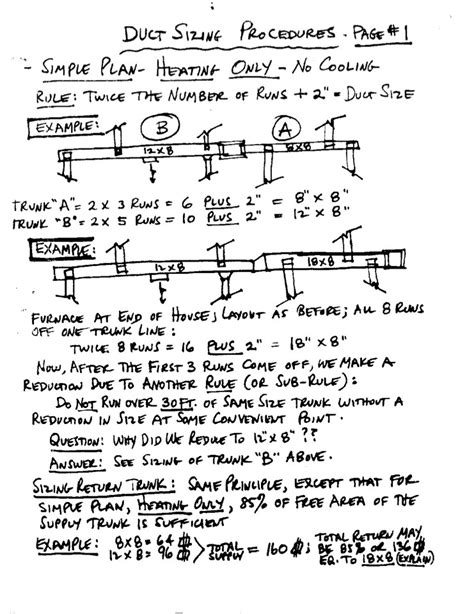 DUCT SIZING PROCEDURES - PAGE #1
- SIMPLE PLAN - HEATING ONLY - NO COOLING
RULE: TWICE THE NUMBER OF RUNS + 2" = DUCT SIZE
EXAMPLE: B A
12 X 8 8 X 8
TRUNK "A" = 2 X 3 RUNS = 6 PLUS 2" = 8" X 8"
TRUNK "B" = 2 X 5 RUNS = 10 PLUS 2" = 12" X 8"
EXAMPLE:
12 X 8 18 X 8
FURNACE AT END OF HOUSE; LAYOUT AS BEFORE; ALL 8 RUNS
OFF ONE TRUNK LINE:
TWICE 8 RUNS = 16 PLUS 2" = 18" X 8"
NOW, AFTER THE FIRST 3 RUNS COME OFF, WE MAKE A
REDUCTION DUE TO ANOTHER RULE (OR SUB-RULE):
DO NOT RUN OVER 30 FT. OF SAME SIZE TRUNK WITHOUT A
REDUCTION IN SIZE AT SOME CONVENIENT POINT.
QUESTION: WHY DID WE REDUCE TO 12" X 8" ??
ANSWER: SEE SIZING OF TRUNK "B" ABOVE.
SIZING RETURN TRUNK: SAME PRINCIPLE, EXCEPT THAT FOR
SIMPLE PLAN, HEATING ONLY, 85% OF FREE AREA OF THE
SUPPLY TRUNK IS SUFFICIENT
EXAMPLE: 8 X 8 = 64
12 X 8 = 96
TOTAL SUPPLY = 160 ;
TOTAL RETURN MAY
BE 85% OR 136
EQ. TO 18 X 8 (EXPLAIN)